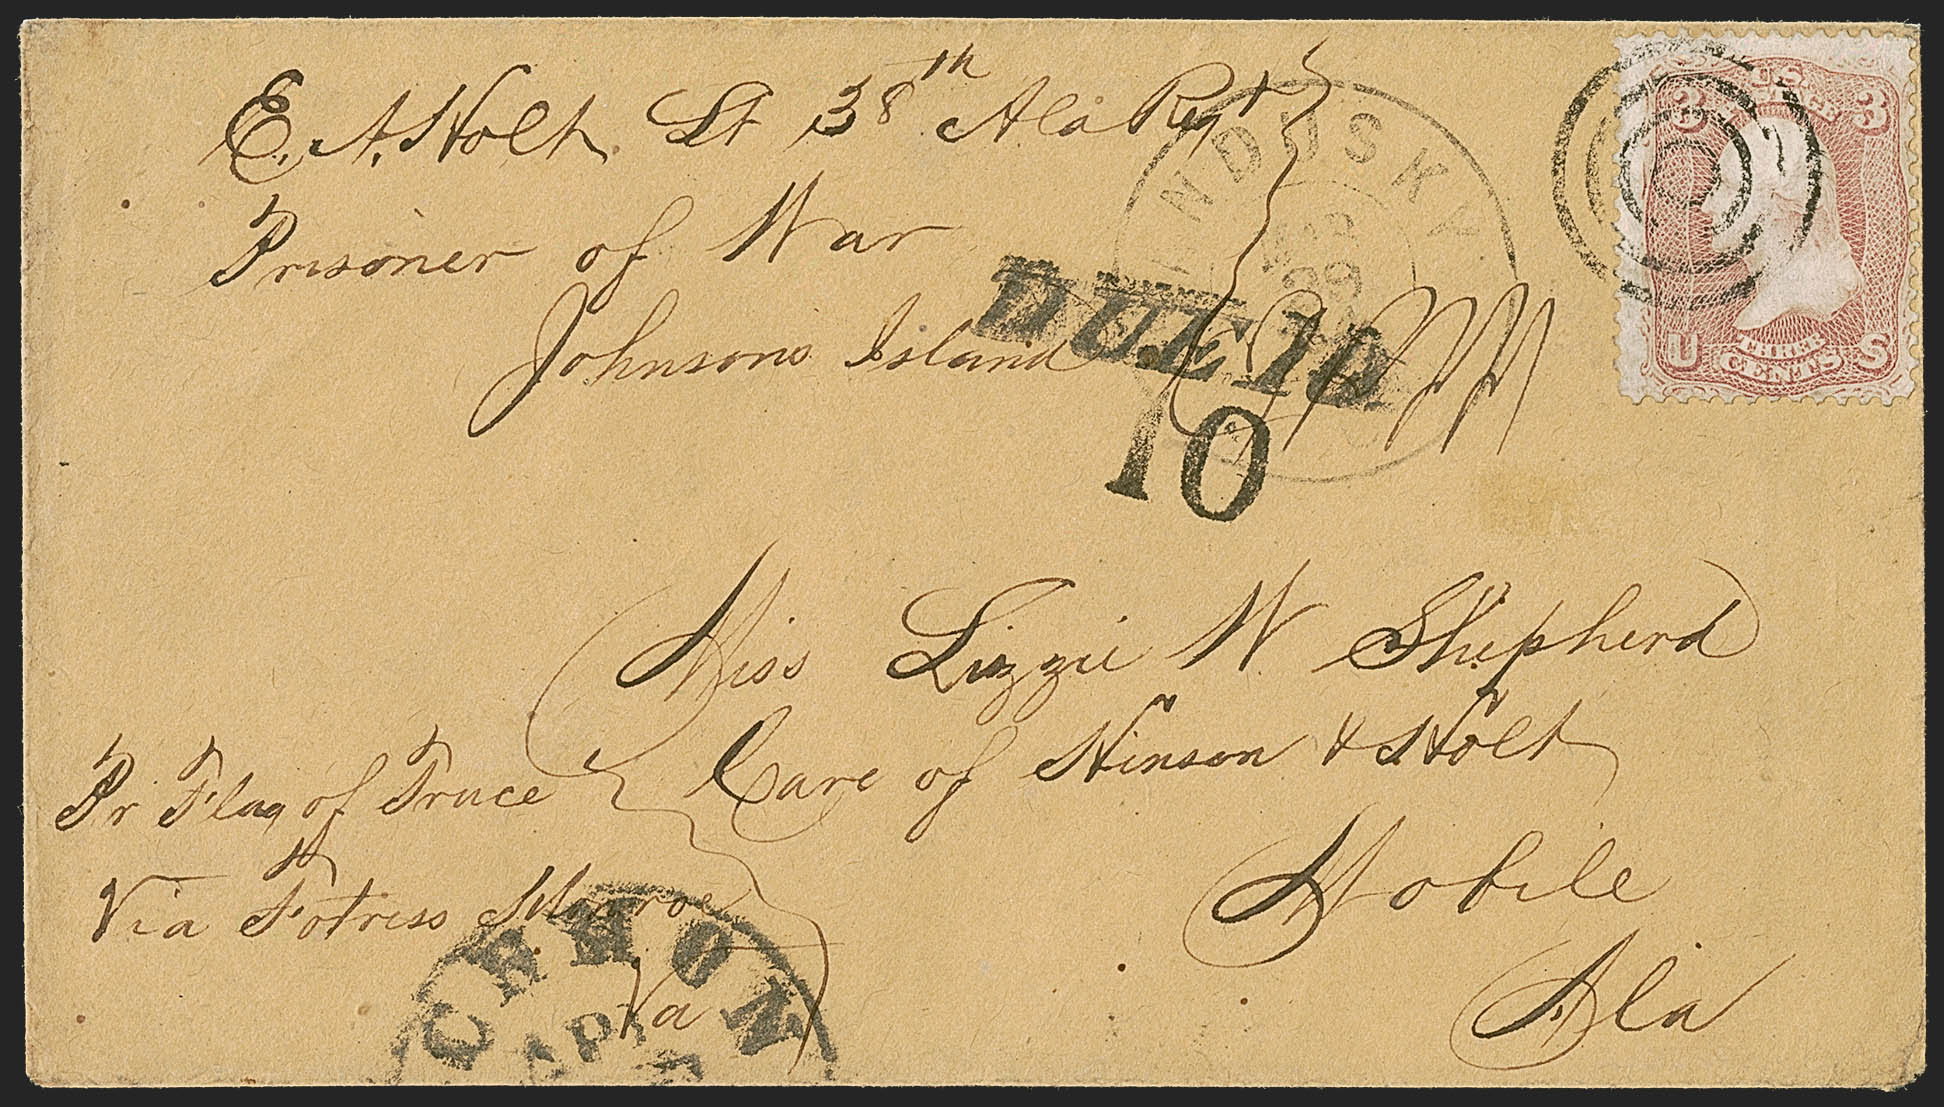 E. A. Holt Lt 38th Ala Regt
Prisoner of War
Johnsons Island
NDUSKY
DUE 10
10
3 U.S. 3
U THREE S
CENTS
Miss Lizzie W Shepherd
Care of Hinson & Holt
Mobile
Ala
Pr Flag of Truce
Via Fotriss Monroe
Va
CHMON
AP